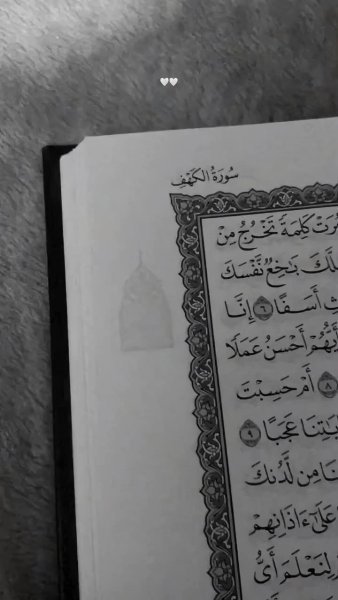 سُورَةُ الكَهْفِ
كَلِمَةً تَخْرُجُ مِنْ
بَٰخِعٌ نَّفْسَكَ
أَسَفًا ٦ إِنَّا
أَيُّهُمْ أَحْسَنُ عَمَلًا
٨ أَمْ حَسِبْتَ
عَجَبًا ٩
مِن لَّدُنكَ
عَلَىٰٓ ءَاذَانِهِمْ
لِنَعْلَمَ أَىُّ